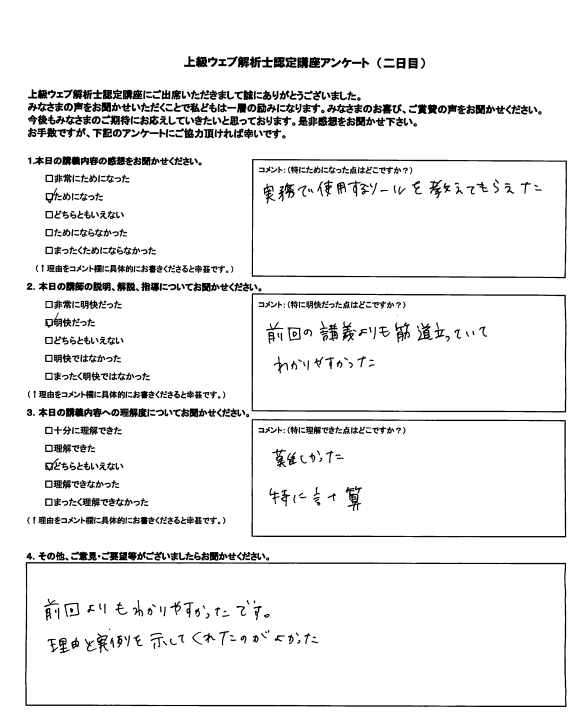 上級ウェブ解析士認定講座アンケート（二日目）
上級ウェブ解析士認定講座にご出席いただきまして誠にありがとうございました。
みなさまの声をお聞かせいただくことで私どもは一層の励みになります。みなさまのお喜び、ご賞賛の声をお聞かせください。
今後もみなさまのご期待にお応えしていきたいと思っております。是非感想をお聞かせ下さい。
お手数ですが、下記のアンケートにご協力頂ければ幸いです。
1.本日の講義内容の感想をお聞かせください。
□非常にためになった
☑ためになった
□どちらともいえない
□ためにならなかった
□まったくためにならなかった
（↑理由をコメント欄に具体的にお書きくださると幸甚です。）
コメント：（特にためになった点はどこですか？）
実務で使用するツールを教えてもらえた
2. 本日の講師の説明、解説、指導についてお聞かせください。
□非常に明快だった
☑明快だった
□どちらともいえない
□明快ではなかった
□まったく明快ではなかった
（↑理由をコメント欄に具体的にお書きくださると幸甚です。）
コメント：（特に明快だった点はどこですか？）
前回の講義よりも筋道立っていて
わかりやすかった
3. 本日の講義内容への理解度についてお聞かせください。
□十分に理解できた
□理解できた
☑どちらともいえない
□理解できなかった
□まったく理解できなかった
（↑理由をコメント欄に具体的にお書きくださると幸甚です。）
コメント：（特に理解できた点はどこですか？）
難しかった
特に計算
4. その他、ご意見・ご要望等がございましたらお聞かせください。
前回よりもわかりやすかったです。
理由と実例を示してくれたのがよかった